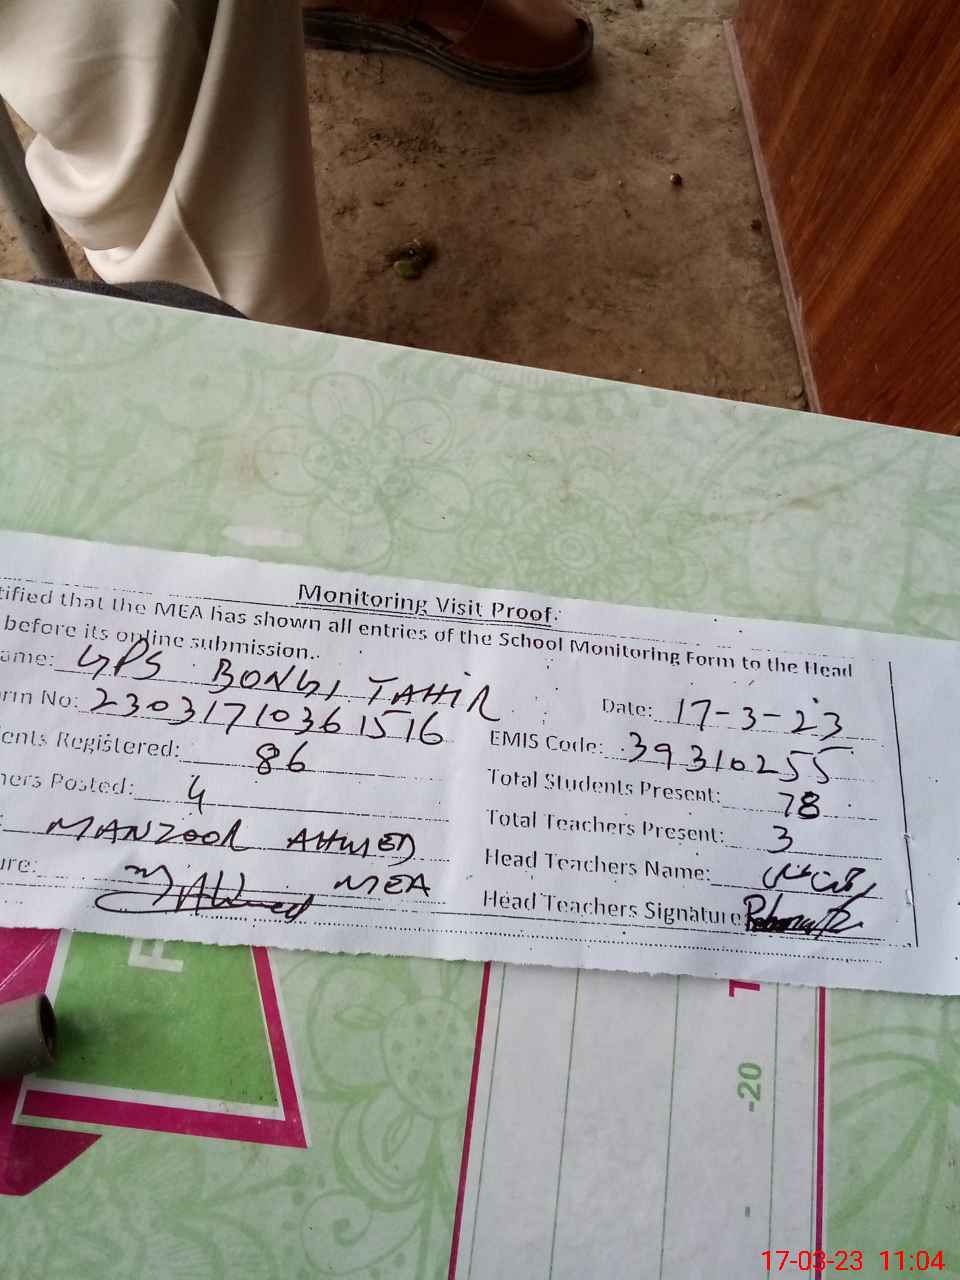 Monitoring Visit Proof:
tified that the MEA has shown all entries of the School Monitoring Form to the Head
before its online submission.
ame: GPS BONGI TAHIR
Date: 17-3-23
orm No: 2303171036 1516
EMIS Code: 39310255
ents Registered: 86
Total Students Present: 78
hers Posted: 4
Total Teachers Present: 3
: MANZOOR AHMED
Head Teachers Name:
ure: MAhmed MEA
Head Teachers Signature
-20
17-03-23 11:04